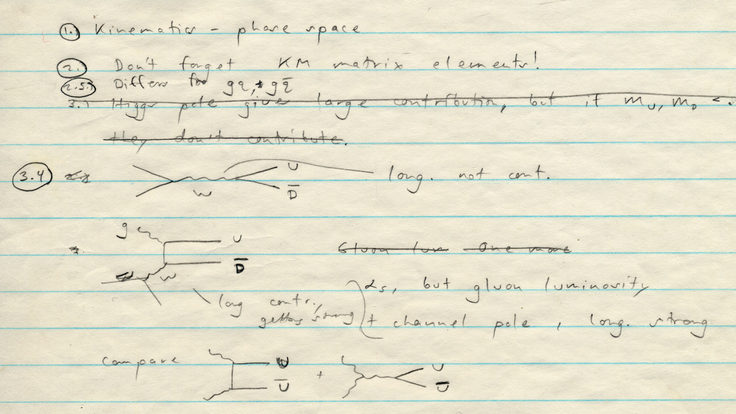 1. Kinematics - phase space
2. Don't forget KM matrix elements!
2.5. Differs for gq, g q̄
3.) Higgs pole give large contribution, but if m_U, m_D <.
they don't contribute.
3.4 U
W D̄ long. not cont.
g U
D̄ Gluon One more
W
long contr., getting strong
α_s, but gluon luminosity
t channel pole, long. strong
compare U Ū + U Ū